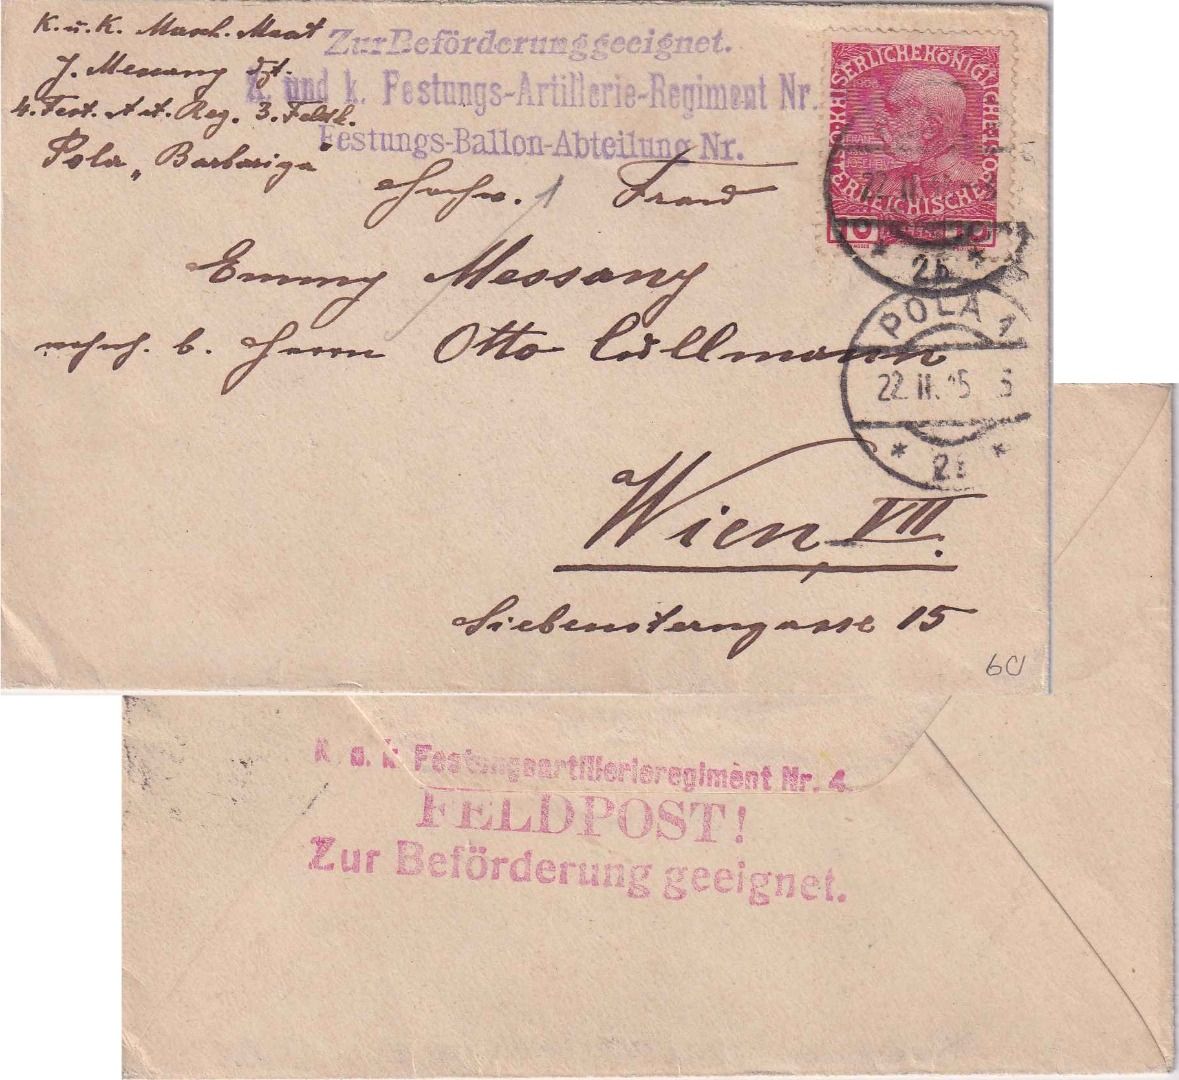 K. u. K. Masch. Maat
J. Messang dzt.
4. Fest. Art. Reg. 3. Feldk.
Pola „Barbariga"
Zur Beförderung geeignet.
K. und k. Festungs-Artillerie-Regiment Nr.
Festungs-Ballon-Abteilung Nr.
1
KAISERLICHE KÖNIGLICHE
ÖSTERREICHISCHE POST
10 10
22 II
2b
POLA 1
22. II. 15
Hochw. Frau
Emmy Messang
wohnh. b. Herrn Otto Cullmann
Wien VII.
Siebensterngasse 15
60
K. u. k. Festungsartillerieregiment Nr. 4.
FELDPOST!
Zur Beförderung geeignet.